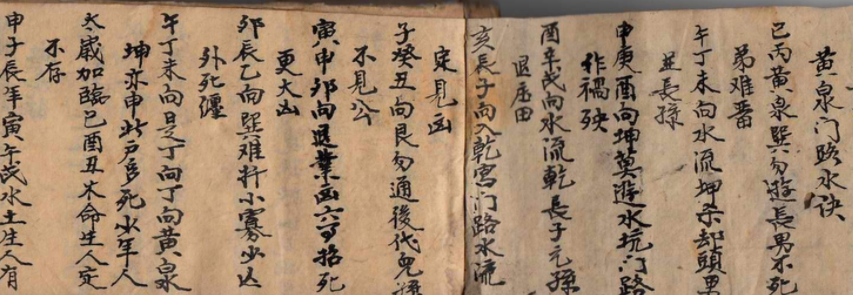 黄泉门路水诀
巳丙黄泉巽勿遊長男不死
弟难晋
午丁未向水流坤杀却頭男
並長孫
申庚酉向坤莫遊水坑门路
作禍殃
酉辛戌向水流乾長子元孫
退庄田
亥長子向入乾宫门路水流
定見凶
子癸丑向艮勿通後代児孫
不見公
寅甲卯向退業凶六宁括死
更大凶
卯辰乙向巽难扦小寡少亾
外死㓓
午丁未向是丁向丁向黄泉
坤亦申此户多死少年人
太歲加臨巳酉丑木命生人定
不存
申子辰年寅午戌水土生人有